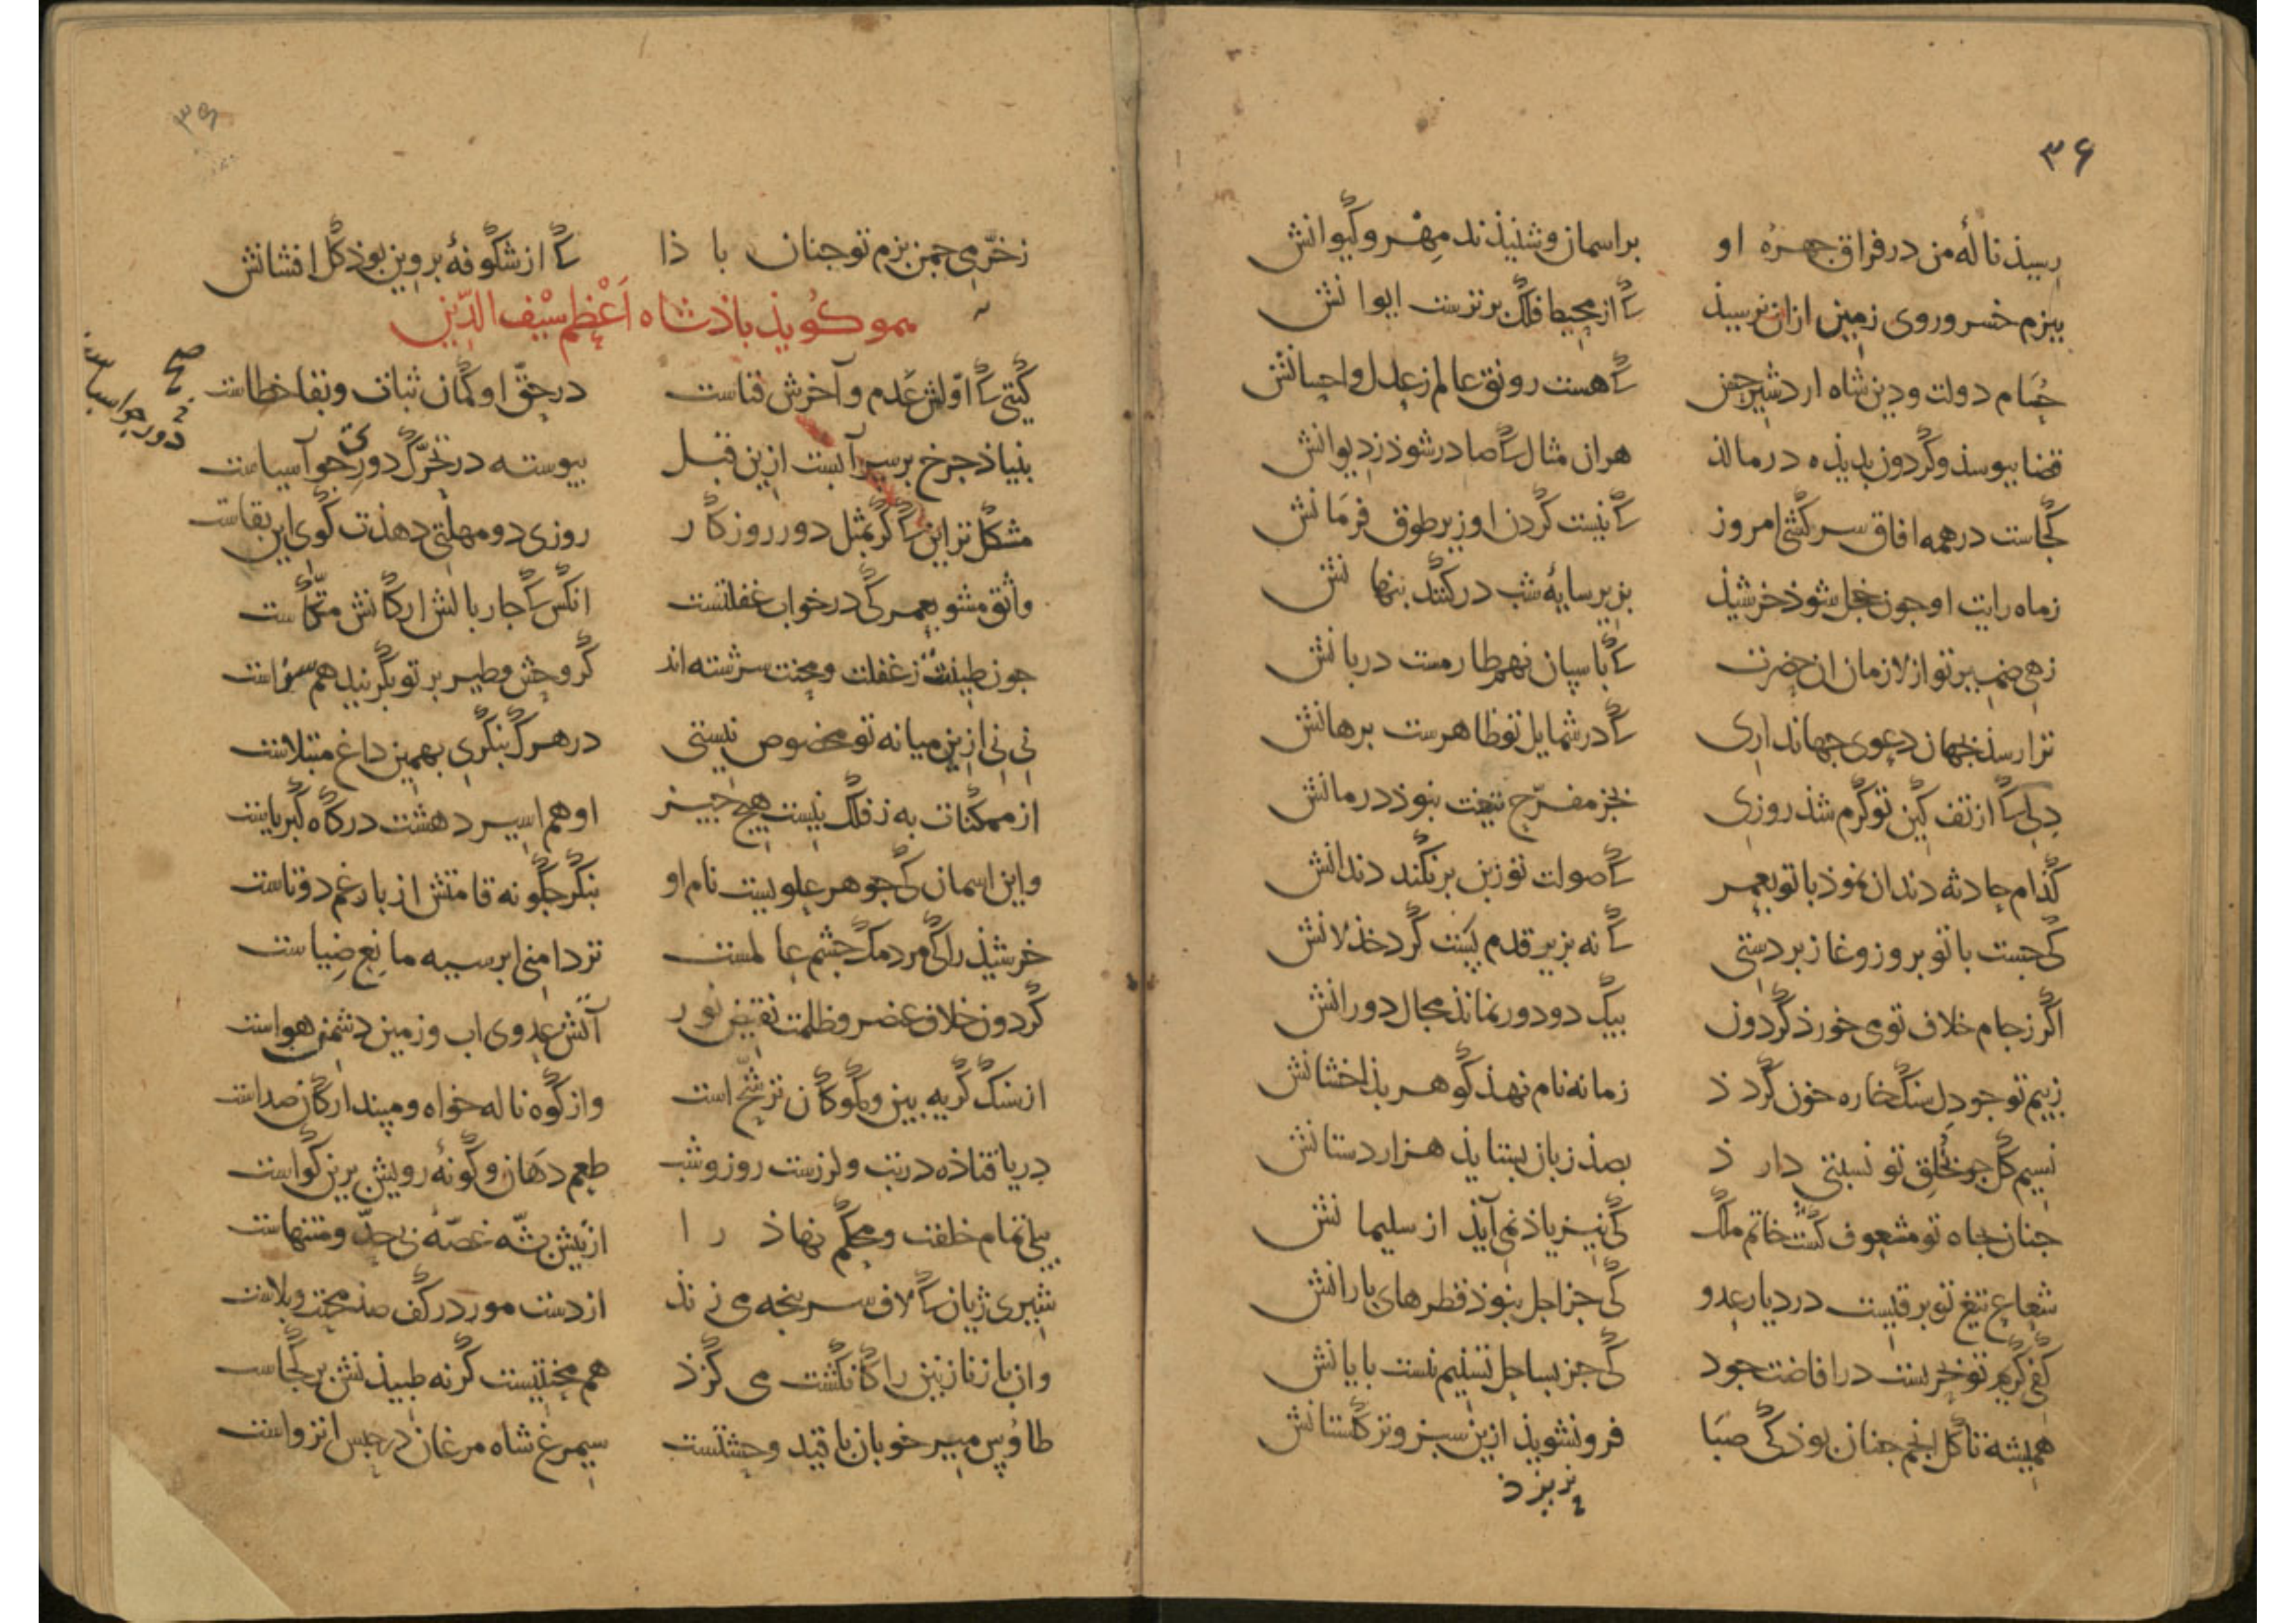 ۳۶
رسید نالهٔ من در فراق چهرهٔ او بر اسمان و شنیذند مهر و کیوانش
ببزم خسرو روی زمین ازان نرسید کی از محیط فلک برترست ایوانش
حسام دولت و دین شاه اردشیر حسن کی هست رونق عالم ز عدل و احسانش
قضا ببوسذ و کردون بدیذه در مالذ هران مثال کی صادر شوذ ز دیوانش
کجاست در همه افاق سرکشی امروز کی نیست کردن او زیر طوق فرمانش
ز ماه رایت او جون خجل شوذ خرشیذ بزیر سایهٔ شب در کشد بنهانش
زهی ضمیر تو از لازمان ان حضرت کی باسبان نهم طارمست دربانش
ترا رسذ بجهان دعوی جهانداری کی در شمایل تو ظاهرست برهانش
دلی کی از تف کین تو کرم شذ روزی بجز مفرّح تیغت نبوذ درمانش
کذام حادثه دندان نموذ با تو بعمر کی صولت تو ز بن برنکند دندانش
کی جست با تو بروز وغا زبردستی کی نه بزیر قدم بست کرد خذلانش
اکر ز جام خلاف تو می خورذ کردون بیک دو دور نماند مجال دورانش
ز بیم تو جو دل سنک خاره خون کردذ زمانه نام نهذ کوهر بذخشانش
نسیم کل جو بخلق تو نسبتی دارذ بصذ زبان بستایذ هزاردستانش
جنان بجاه تو مشعوف کشت خاتم ملک کی نیز یاذ نمی آیذ از سلیمانش
شعاع تیغ تو برقیست در دیار عدو کی جز اجل نبوذ قطرهای بارانش
کف کریم تو بحریست در افاضت جود کی جز بساحل تسنیم نیست بایانش
همیشه تا کل انجم جنان بوذ کی صبا فرو نشویذ ازین سبز و تر کلستانش
نریزذ
ز خرّمی جمن بزم تو جنان باذا کی از شکوفهٔ بروین بوذ کل افشانش
همو کویذ باذشاه اعظم سیف الدّین
کیتی کی اوّلش عدم و آخرش فناست در حقّ او کمان ثبات و بقا خطاست
بنیاذ جرخ بر سر آبست ازین قبل بیوسته در تحرّک دوری جو آسیاست
صح
مشکل تر این کی کر بمثل دور روزکار روزی دو مهلتی دهذت کوی این بقاست
واثق مشو بعمر کی در خواب غفلتست انکس کی جار بالش ارکانش متّکاست
جون طینتت ز غفلت و محنت سرشته اند کر وحش و طیر بر تو بکریند هم سزاست
نی نی ازین میانه تو مخصوص نیستی در هرک بنکری بهمین داغ مبتلاست
از ممکنات به ز فلک نیست هیج جیز او هم اسیر دهشت درکاه کبریاست
واین اسمان کی جوهر علویست نام او بنکر جکونه قامتش از بار غم دوتاست
خرشیذ را کی مردمک جشم عالمست تر دامنی ابر سیه مانع ضیاست
کردون خلاف عنصر و ظلمت نقیض نور آتش عدوی اب و زمین دشمن هواست
از سنک کریه بین و مکو کان ترشّح است وز کوه ناله خواه و مبندار کان صداست
دریا فتاذه در تب و لرزست روز و شب طعم دهان و کونهٔ رویش برین کواست
بیلی تمام خلقت و محکم نهاذ را از نیش بشّه غصّه بی حدّ و منتهاست
شیری ژیان کی لاف سر بنجه می زند از دست مور در کف صذ محنت و بلاست
وان باز نازنین را کانکشت می کزذ هم محنتیست کر نه طبیذنش بر کجاست
طاوس میر خوبان با قید و حشتست سیمرغ شاه مرغان در حبس انزواست